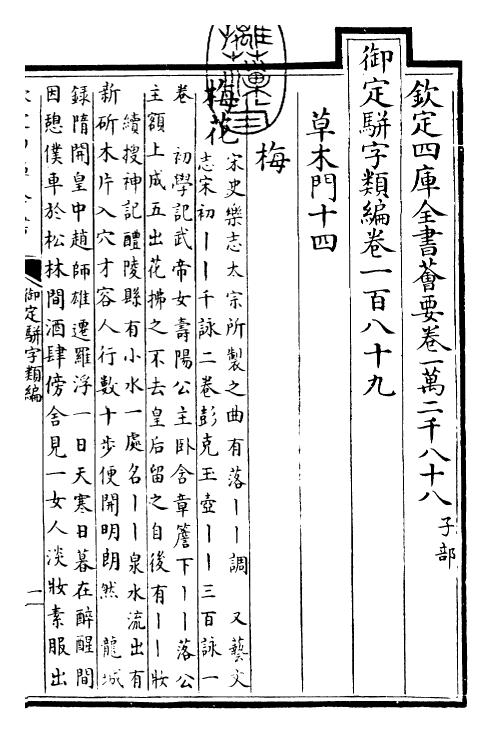 欽定四庫全書薈要卷一萬二千八十八 子部
御定駢字類編卷一百八十九
草木門十四
梅
梅花 宋史樂志太宗所製之曲有落丨丨調 又藝文
志宋初丨丨千詠二卷彭克玉壺丨丨三百詠一
卷 初學記武帝女壽陽公主卧含章簷下丨丨落公
主額上成五出花拂之不去皇后留之自後有丨丨妝
續搜神記醴陵縣有小水一處名丨丨泉水流出有
新斫木片入穴才容人行數十步便開明朗然 龍城
錄隋開皇中趙師雄遷羅浮一日天寒日暮在醉醒間
因憩僕車於松林間酒肆傍舍見一女人淡妝素服出
御定駢字類編
一